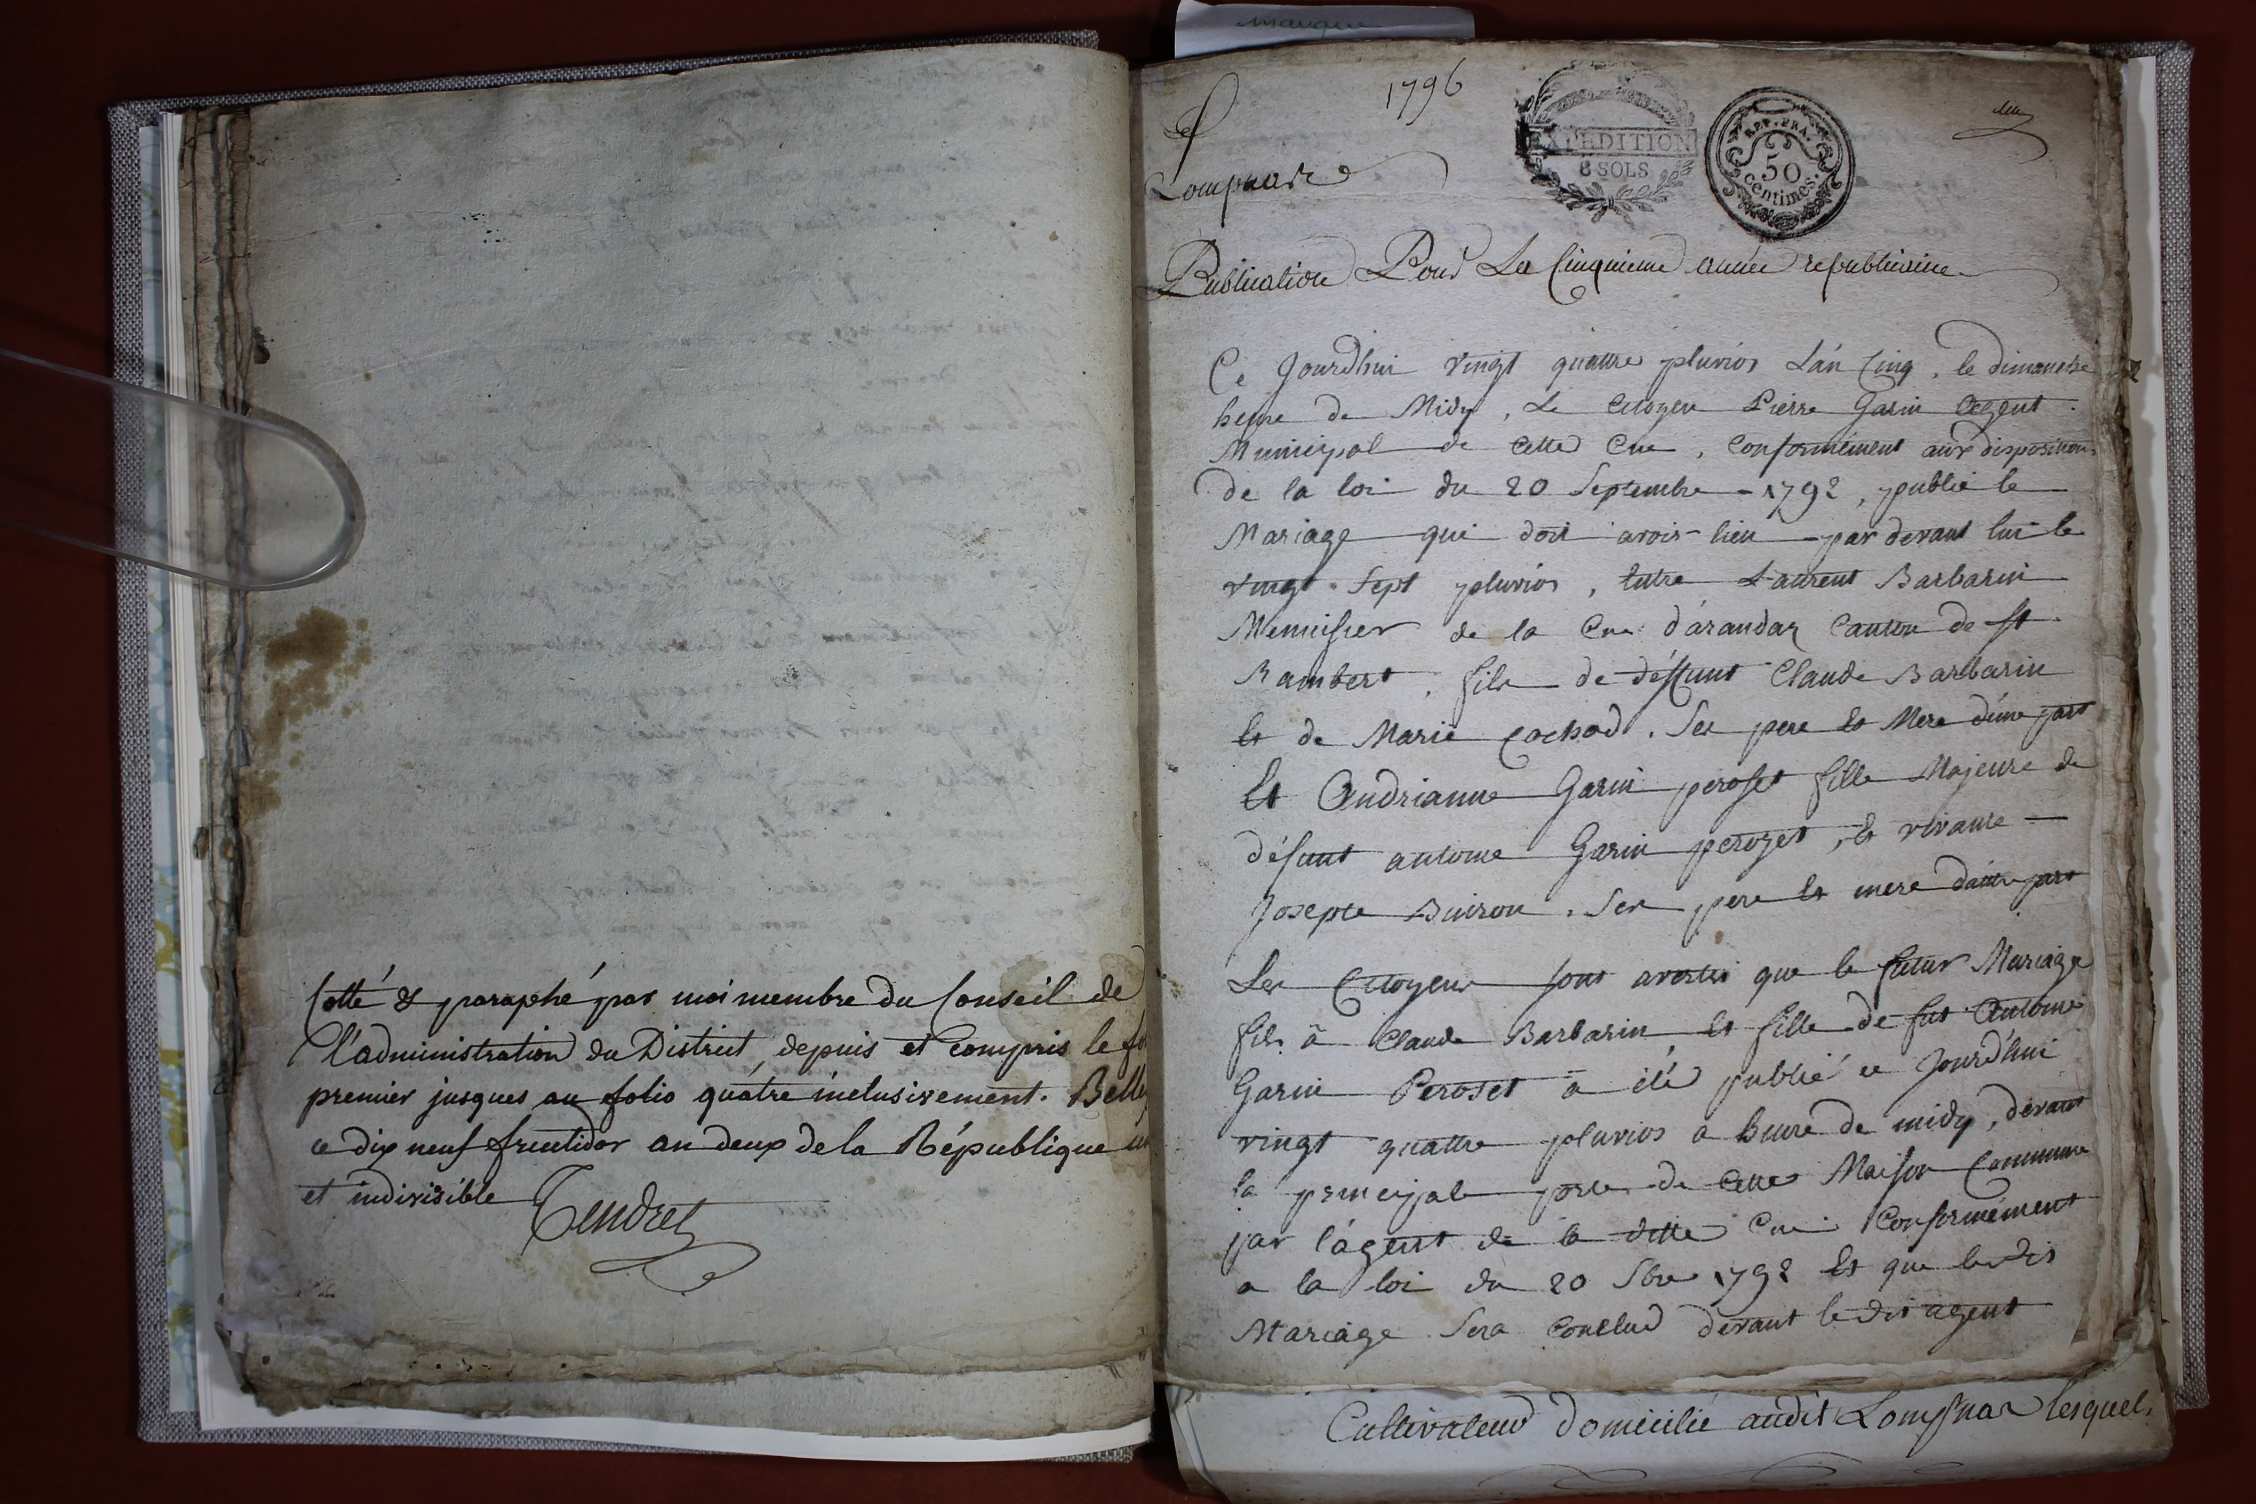 Cotté & paraphé par moi membre du Conseil de
l'administration du District, depuis et compris le fo
premier jusques au folio quátre inclusivement. Belle
ce dix neuf fructidor an deux de la République un
et indivisible
Tendret
manque
1796
EXPEDITION
8 SOLS
REP. FRA.
50
centimes.
Lompnas
Publication Pour La Cinquieme année republicaine
Ce Jourdhui vingt quattre pluvios L'an Cinq, le dimanche
heure de Midy, Le Citoyen Pierre Garin Agent
Municipal de cette Cne, Conformément aux dispositions
de la loi du 20 Septembre 1792, publié le
Mariage qui doit avoir lieu par devant lui le
vingt Sept pluvios, Entre Laurent Barbarin
Menuisier de la Cne d'arandaz Canton de St
Rambert, fils de déffunt Claude Barbarin
Et de Marie Cochod. Ses pere Et Mere d'une part
Et Andrianne Garin peroset fille Majeure de
défunt antoine Garin perozet, Et vivante
Josepte Buiron. Ses pere Et mere d'autre part
Les Citoyens sont avertis que le futur Mariage
fils à Claude Barbarin, Et fille de fut Antoine
Garin Peroset a été publié ce Jourd'hui
vingt quattre pluvios a heure de midy, devant
la principale porte de cette Maison Commune
par l'agent de la ditte Cne Conformément
a la loi du 20 Sbre 1792 Et que ledit
Mariage Sera Conclud devant ledit agent
Cultivateur domicilié audit Lompnas lesquels